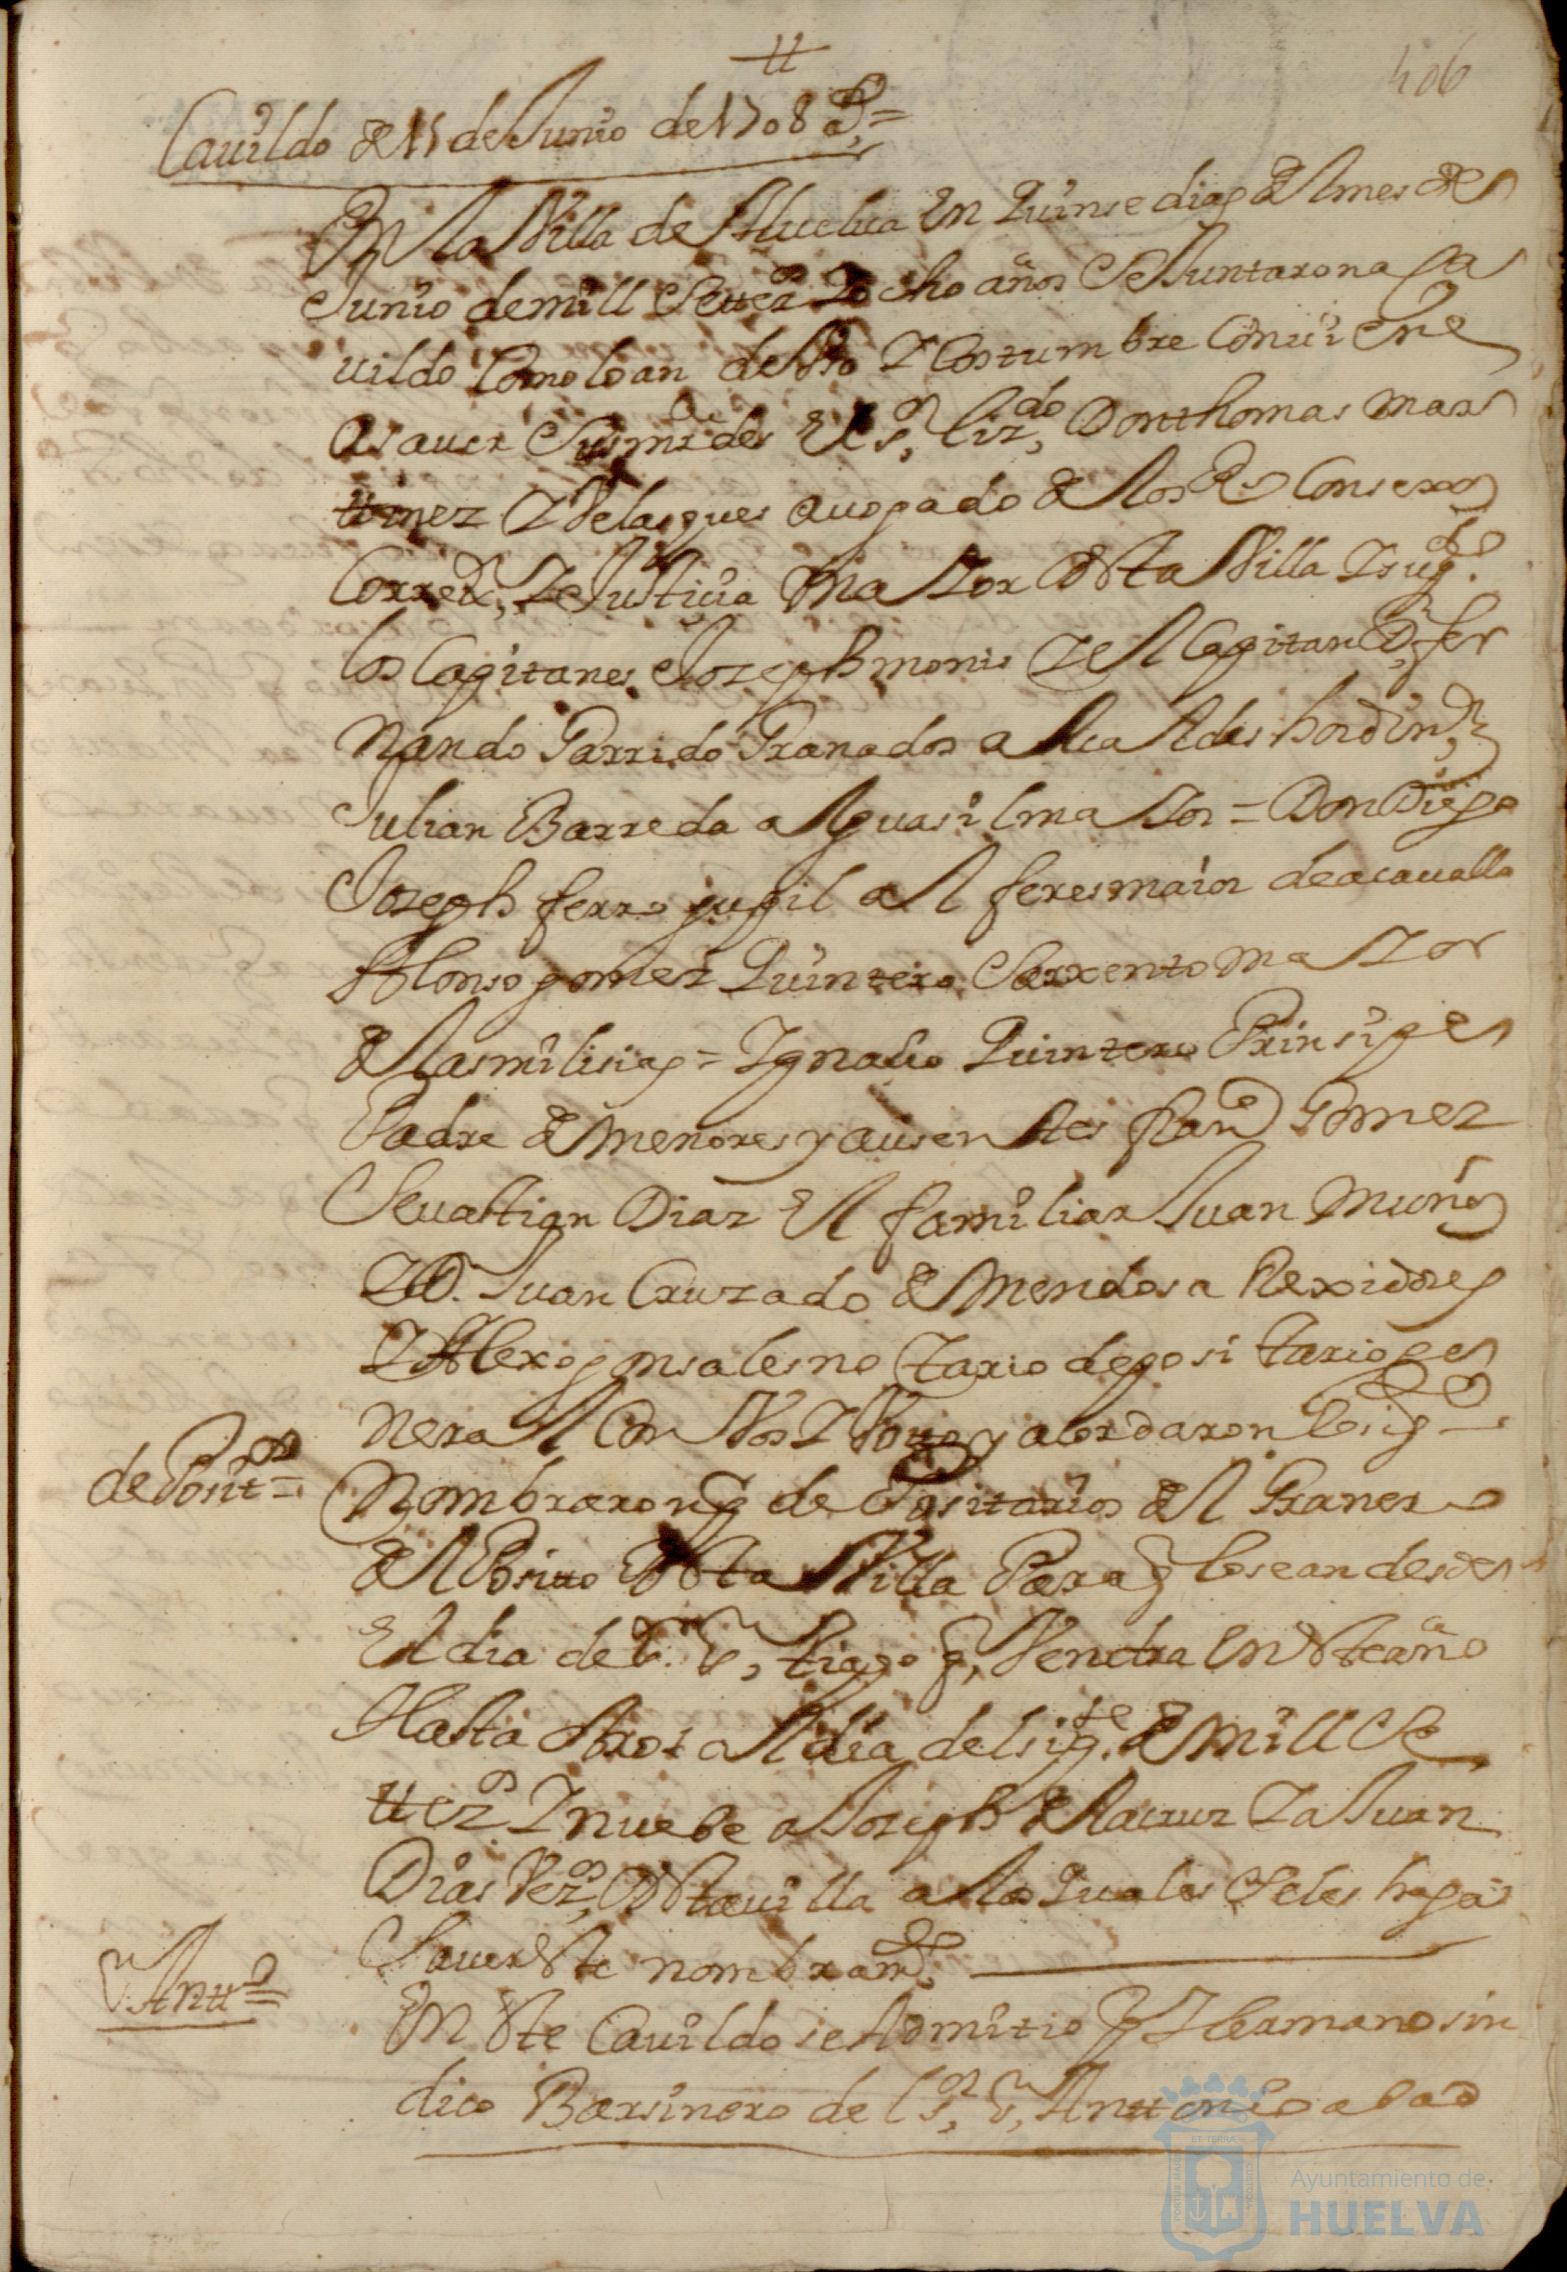 406
Cauildo de 15 de Junio de 1708 as =
En la Villa de Huelua En Quinse dias del mes de
Junio de mill Settezos Y ocho años Se Juntaron a Ca
uildo Como lo an de Vso Y Costumbre Conuiene
a sauer Sus mrdes El sr, lizdo, Don thomas mar
ttinez Y Velasques auogado de los Rs Consexos
Correxr, Y Justicia Maior desta Villa
los Capitanes Joseph monis Y el Capitan D, fer
nando Garrido Granados alcaldes hordin,
Julian Barreda alguasil maior = Don Diego
Joseph ferro alferes maior de acauallo
Alonso gomez Quintero Sarxento maior
de las milisias = Ygnacio Quintero Prinsipe
Padre de menores y ausentes fran,co Gomez
Seuastian Diaz El familiar Juan Muños
Y D. Juan Cruzado de Mendosa Rexidores
Y Alexo gonsales notario depositario ge
neral Con Vos Y Voto y acordaron lo sig
de Posito =
Nombraron p de Positarios del Granero
del Posito desta Villa Para q lo sean desde
El dia de Sr. S, tiago q, Vendra En este año
Hasta otro tal dia del sigte de mill Se
ttezos Y nuebe a Joseph de la cruz Y a Juan
Dias Vezos, desta uilla a los Quales Se les haga
Sauer Este nombramto.
S. Antto =
En Este Cauildo se Admitio Por Hermano sin
dico Barsinero del sr, S, Anttonio abad
ET TERRÆ
PORTUS MARIS
CUSTODIA
Ayuntamiento de
HUELVA